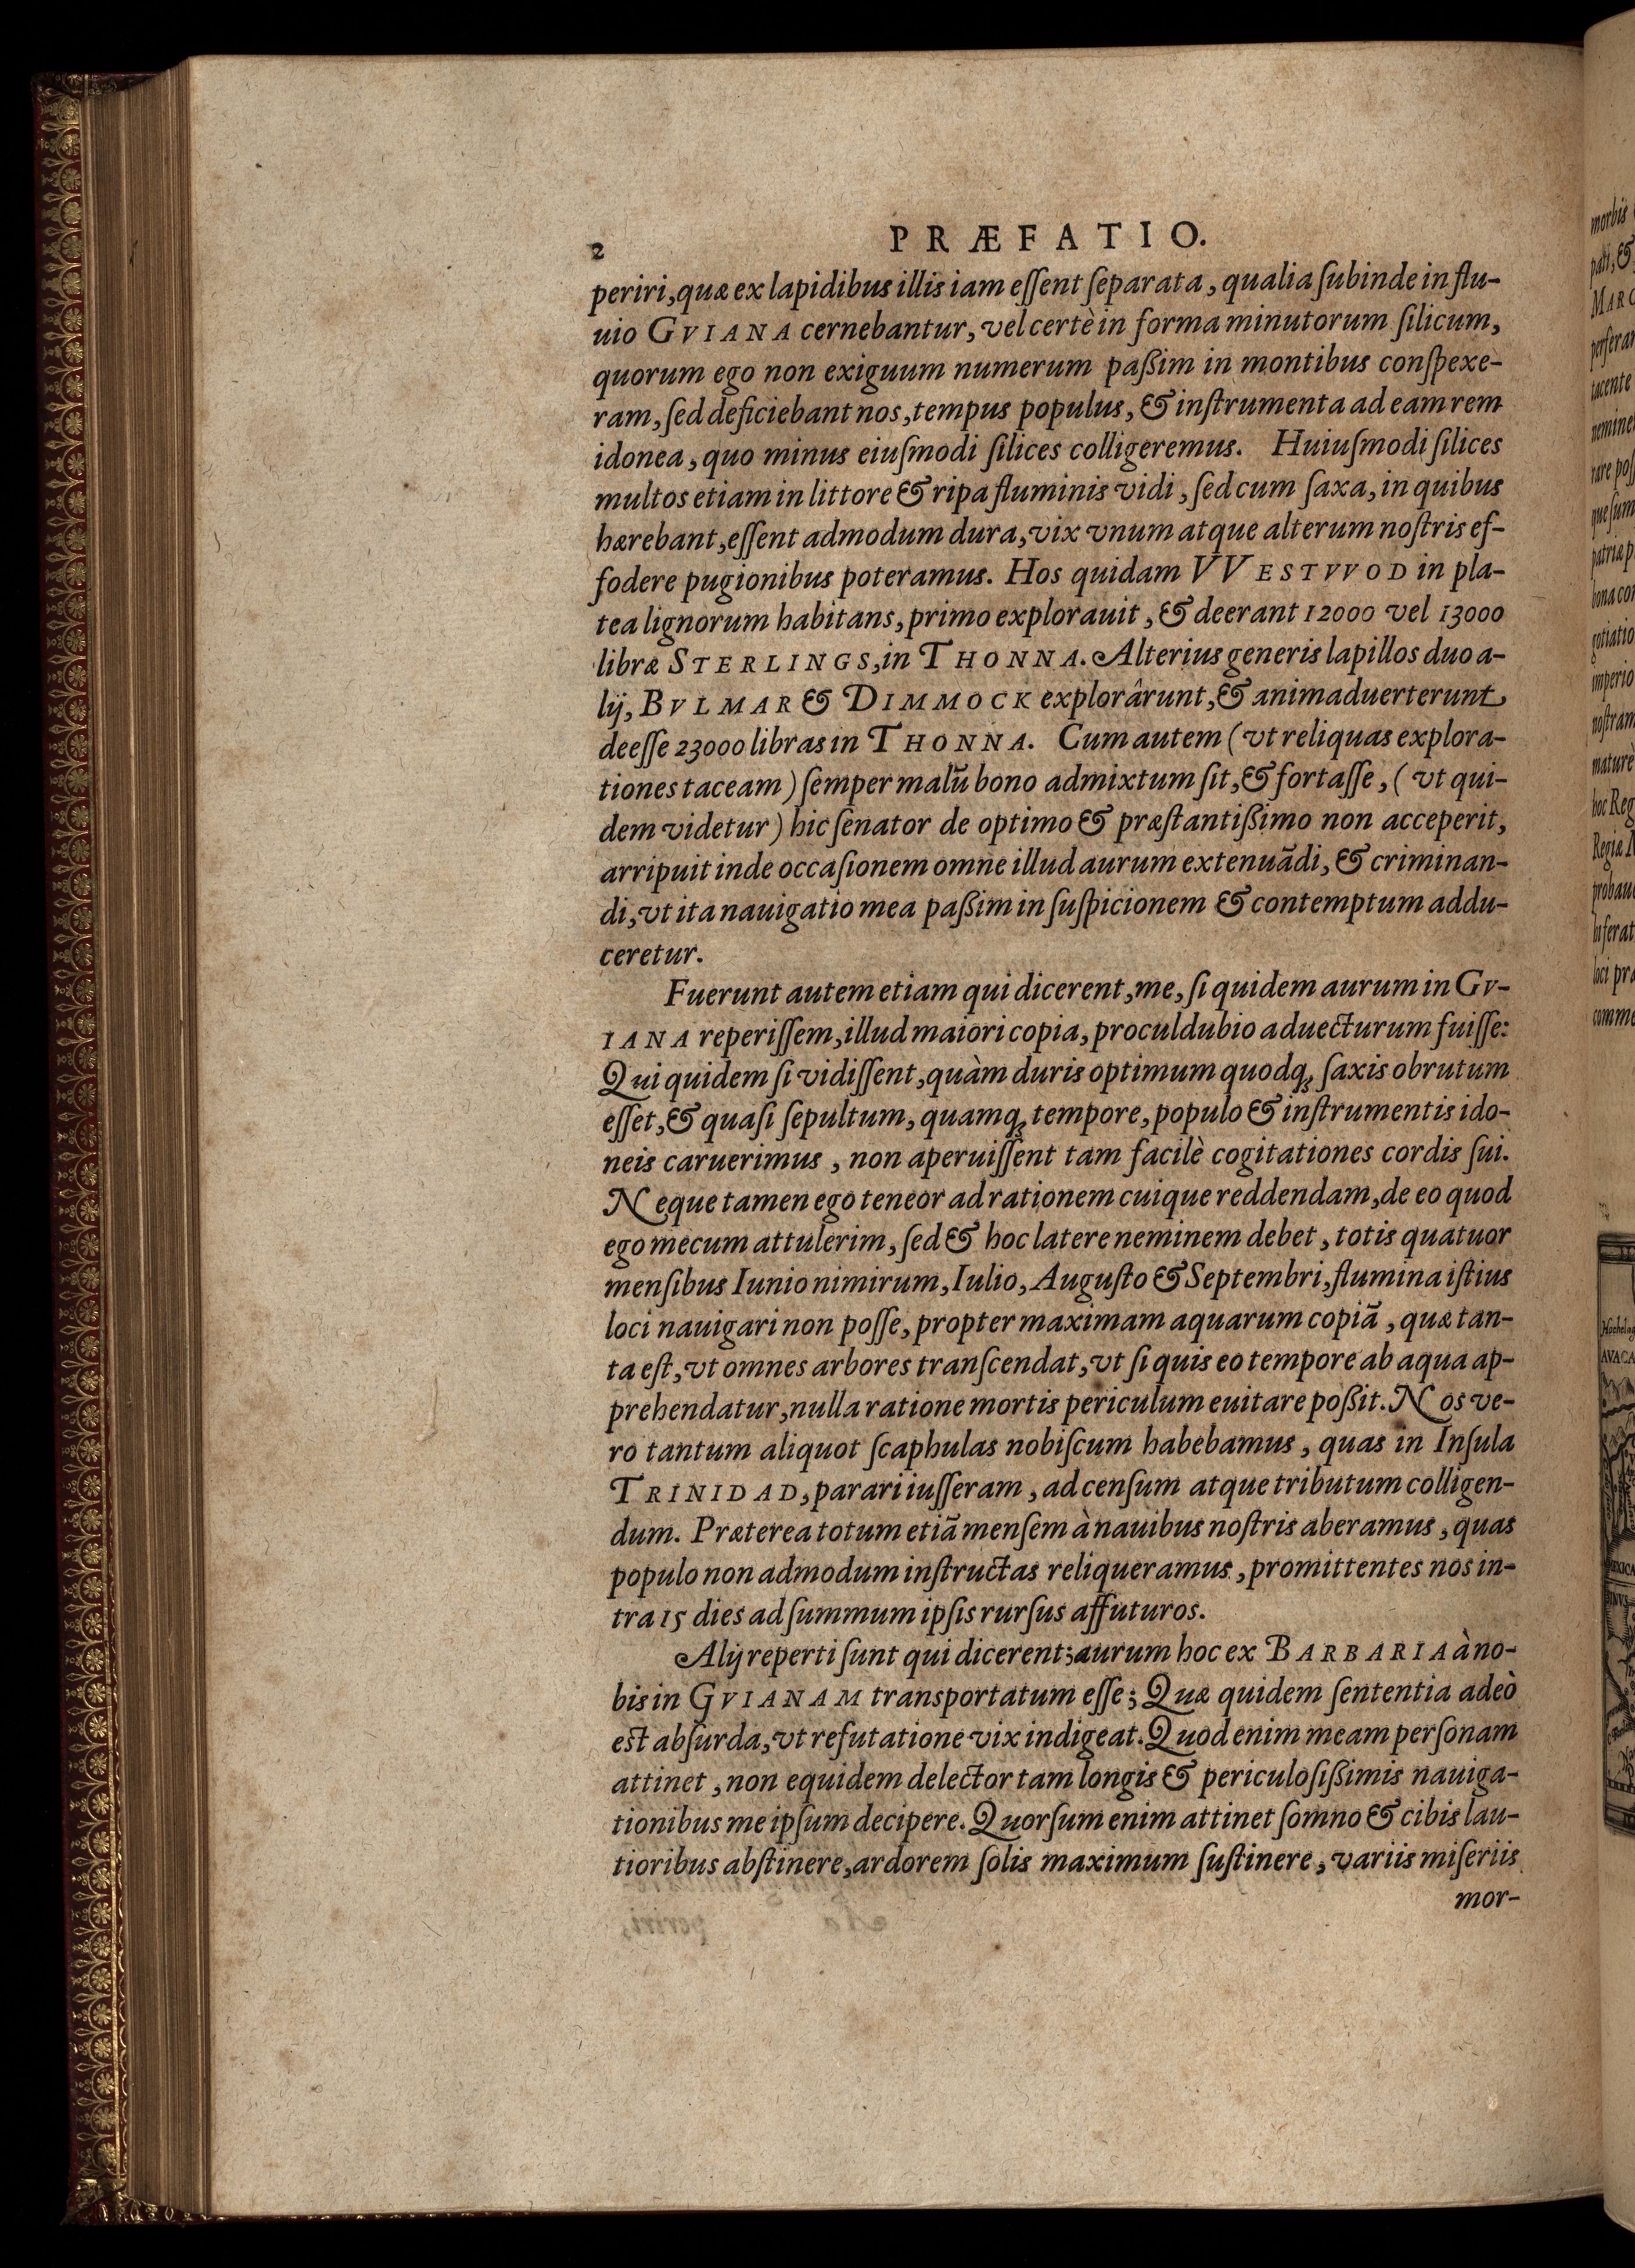 2
PRÆFATIO.
periri, quæ ex lapidibus illis iam eſſent ſeparata, qualia ſubinde in flu-
uio GVIANA cernebantur, vel certè in forma minutorum ſilicum,
quorum ego non exiguum numerum paßim in montibus conſpexe-
ram, ſed deficiebant nos, tempus populus, & inſtrumenta ad eam rem
idonea, quo minus eiuſmodi ſilices colligeremus. Huiuſmodi ſilices
multos etiam in littore & ripa fluminis vidi, ſed cum ſaxa, in quibus
hærebant, eſſent admodum dura, vix vnum atque alterum noſtris ef-
fodere pugionibus poteramus. Hos quidam VVESTVVOD in pla-
tea lignorum habitans, primo explorauit, & deerant 12000 vel 13000
libræ STERLINGS, in THONNA. Alterius generis lapillos duo a-
lij, BVLMAR & DIMMOCK explorârunt, & animaduerterunt
deeſſe 23000 libras in THONNA. Cum autem (vt reliquas explora-
tiones taceam) ſemper malũ bono admixtum ſit, & fortaſſe, (vt qui-
dem videtur) hic ſenator de optimo & præſtantißimo non acceperit,
arripuit inde occaſionem omne illud aurum extenuãdi, & criminan-
di, vt ita nauigatio mea paßim in ſuſpicionem & contemptum addu-
ceretur.
Fuerunt autem etiam qui dicerent, me, ſi quidem aurum in GV-
IANA reperiſſem, illud maiori copia, proculdubio aduecturum fuiſſe:
Qui quidem ſi vidiſſent, quàm duris optimum quodq; ſaxis obrutum
eſſet, & quaſi ſepultum, quamq; tempore, populo & inſtrumentis ido-
neis caruerimus, non aperuiſſent tam facilè cogitationes cordis ſui.
Neque tamen ego teneor ad rationem cuique reddendam, de eo quod
ego mecum attulerim, ſed & hoc latere neminem debet, totis quatuor
menſibus Iunio nimirum, Iulio, Auguſto & Septembri, flumina iſtius
loci nauigari non poſſe, propter maximam aquarum copiã, quæ tan-
ta eſt, vt omnes arbores tranſcendat, vt ſi quis eo tempore ab aqua ap-
prehendatur, nulla ratione mortis periculum euitare poßit. Nos ve-
ro tantum aliquot ſcaphulas nobiſcum habebamus, quas in Inſula
TRINIDAD, parari iuſſeram, ad cenſum atque tributum colligen-
dum. Præterea totum etiã menſem à nauibus noſtris aberamus, quas
populo non admodum inſtructas reliqueramus, promittentes nos in-
tra 15 dies ad ſummum ipſis rurſus affuturos.
Alij reperti ſunt qui dicerent; aurum hoc ex BARBARIA à no-
bis in GVIANAM transportatum eſſe; Quæ quidem ſententia adeò
est abſurda, vt refutatione vix indigeat. Quod enim meam perſonam
attinet, non equidem delector tam longis & periculoſißimis nauiga-
tionibus me ipſum decipere. Quorſum enim attinet ſomno & cibis lau-
tioribus abſtinere, ardorem ſolis maximum ſuſtinere, variis miſeriis
mor-
morbis
MARC
tacente
imperio
hoc Reg
loci præ